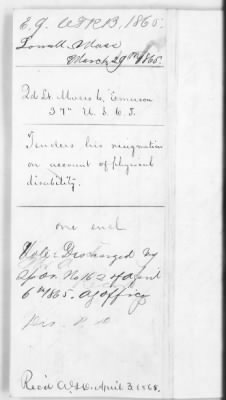 E. 9. A.G.O. 1865.
Lowell, Mass
March 29th 1865.
2d Lt. Moses C. Emerson
37th U.S.C.T.
Tenders his resignation
on account of physical
disability.
one encl
Note: Discharged by
Sp. Or. No 162 of April
6th 1865. AG Office
Rec'd April 3. 1865.